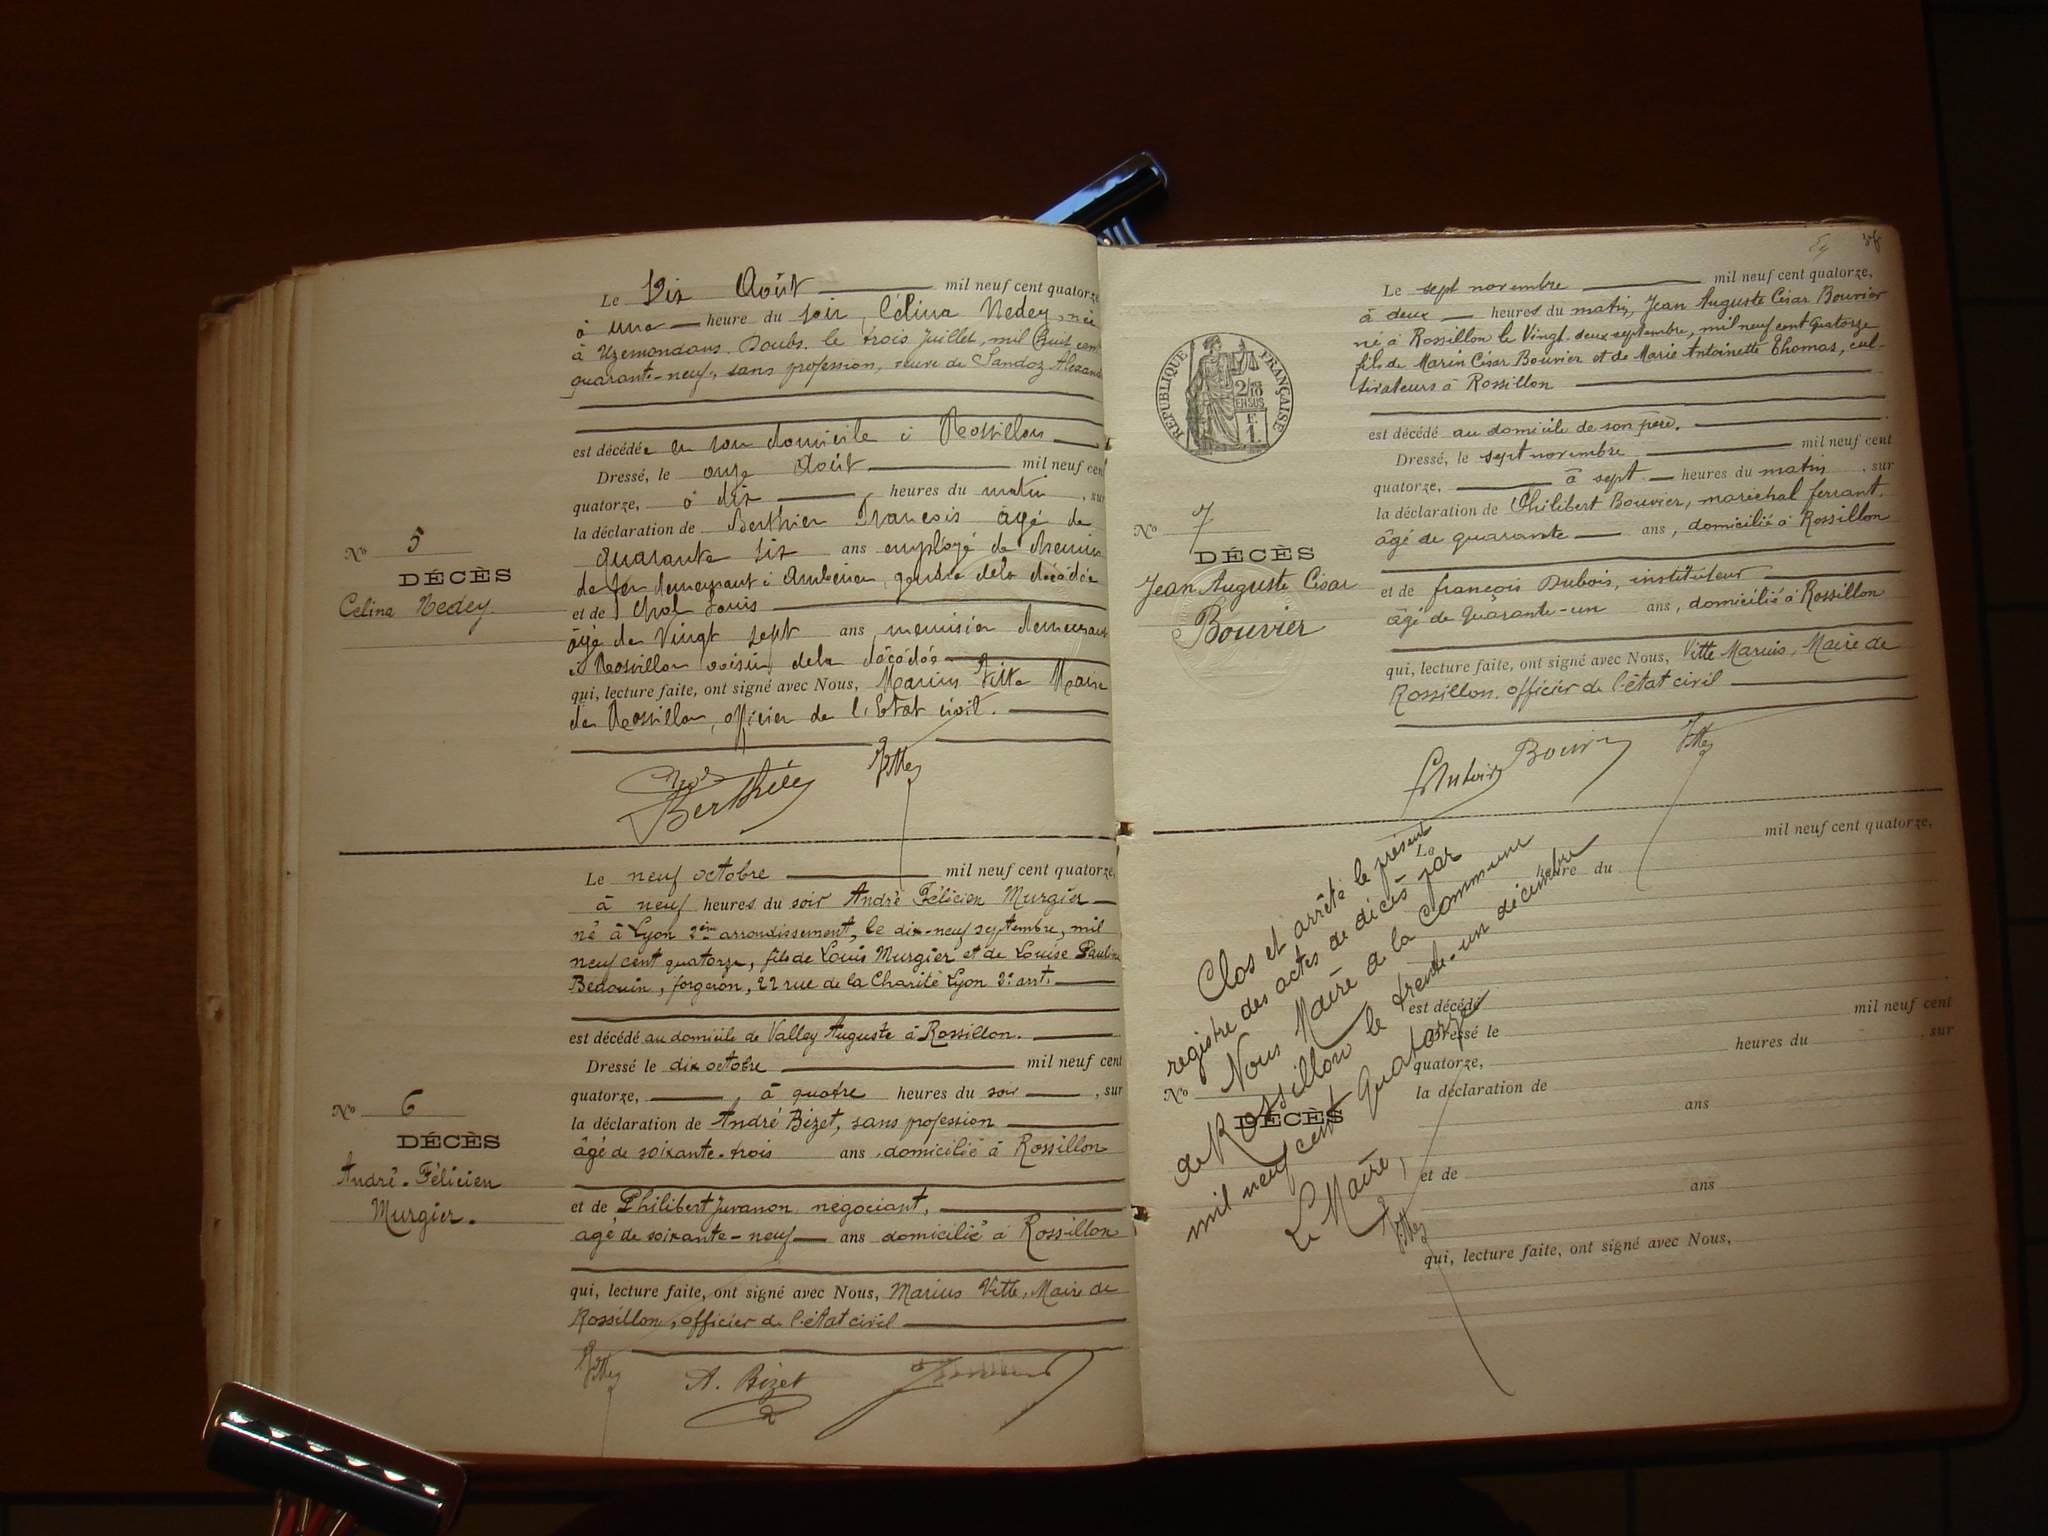 Le Dix Août mil neuf cent quatorze
à une heure du soir, Célina Nedey, née
à Uzemondans Doubs. le trois juillet, mil huit cent
quarante-neuf, sans profession, veuve de Sandoz
est décédée en son domicile à Rossillon
Dressé, le onze Août mil neuf cent
quatorze, à dix heures du matin, sur
la déclaration de Berthier François âgé de
quarante six ans employé de chemin
de fer demeurant à Ambérieu, gendre de la décédée
et de Chol Louis
âgé de Vingt sept ans menuisier demeurant
à Rossillon voisin de la décédée
qui, lecture faite, ont signé avec Nous, Marius Vitte Maire
de Rossillon, officier de l'Etat civil.
No 5
DÉCÈS
Celina Nedey
Berthier Vitte
Le neuf octobre mil neuf cent quatorze,
à neuf heures du soir André Félicien Murgier
né à Lyon 2ème arrondissement, le dix-neuf septembre, mil
neuf cent quatorze, fils de Louis Murgier et de Louise Pauline
Bedouin, forgeron, 22 rue de la Charité Lyon 2e arrt.
est décédé au domicile de Valley Auguste à Rossillon.
Dressé le dix octobre mil neuf cent
quatorze, , à quatre heures du soir , sur
la déclaration de André Bizet, sans profession
âgé de soixante-trois ans, domicilié à Rossillon
et de Philibert Juvanon négociant,
agé de soixante-neuf ans domicilié à Rossillon
qui, lecture faite, ont signé avec Nous, Marius Vitte, Maire de
Rossillon, officier de l'état civil
No 6
DÉCÈS
André-Félicien
Murgier.
Vitte A. Bizet
Le sept novembre mil neuf cent quatorze,
à deux heures du matin, Jean Auguste César Bouvier
né à Rossillon le Vingt-deux septembre, mil neuf cent quatorze
fils de Marin César Bouvier et de Marie Antoinette Thomas, cul-
tivateurs à Rossillon
est décédé au domicile de son père.
Dressé, le sept novembre mil neuf cent
quatorze, à sept heures du matin, sur
la déclaration de Philibert Bouvier, maréchal ferrant,
âgé de quarante ans, domicilié à Rossillon
et de françois Dubois, instituteur
âgé de Quarante-un ans, domicilié à Rossillon
qui, lecture faite, ont signé avec Nous, Vitte Marius, Maire de
Rossillon, officier de l'état civil
RÉPUBLIQUE FRANÇAISE
2/10
EN SUS
F.
1.
No 7
DÉCÈS
Jean Auguste César
Bouvier
Bouvier Vitte
Clos et arrêté le présent
registre des actes de décès par
Nous Maire de la Commune
de Rossillon le trente-un décembre
mil neuf cent quatorze
Le Maire,
Vitte
Le mil neuf cent quatorze,
heure du
est décédé
Dressé le mil neuf cent
quatorze, heures du , sur
la déclaration de
ans
et de
ans
qui, lecture faite, ont signé avec Nous,
No
DÉCÈS